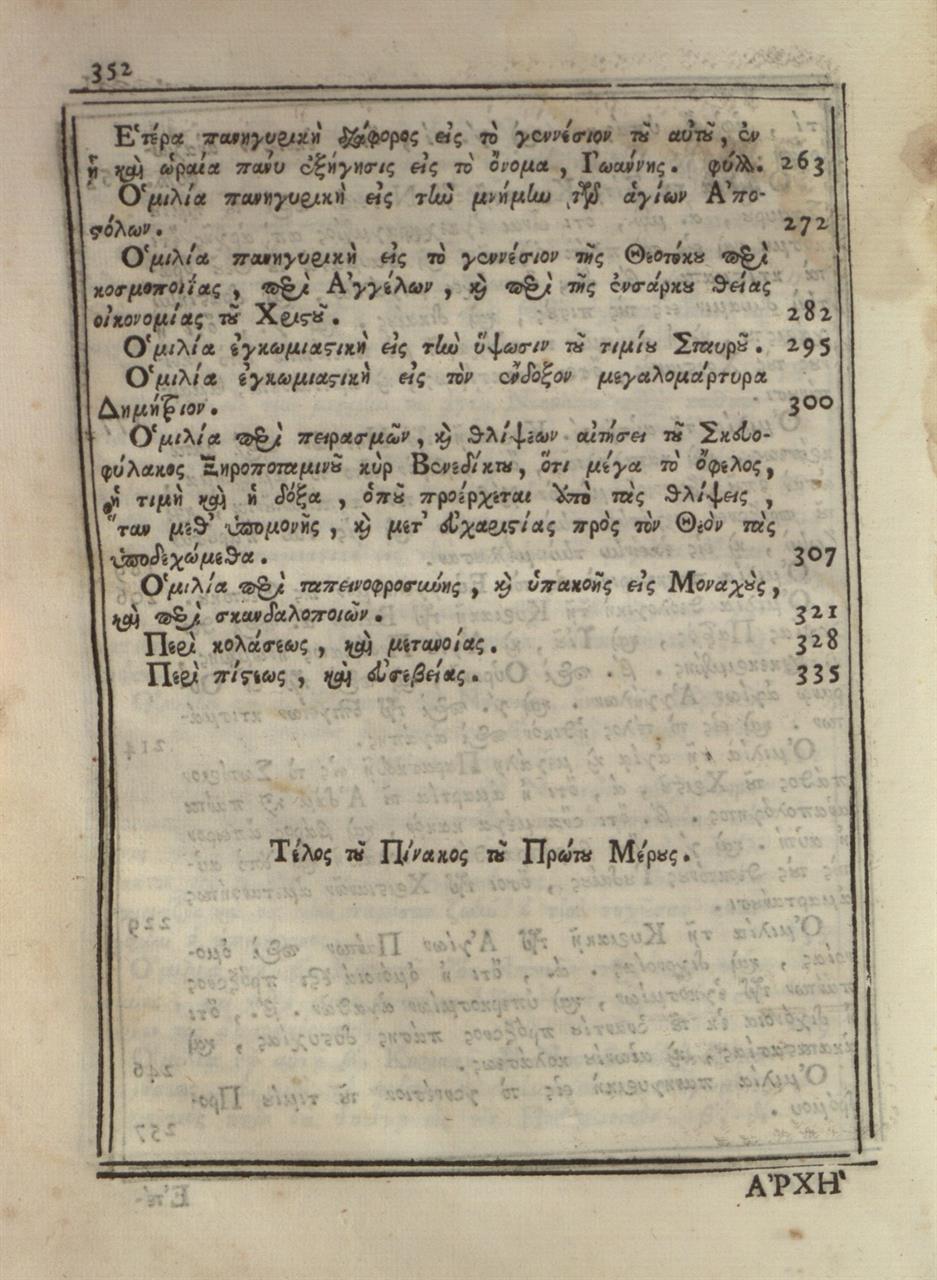 352
Ἑτέρα πανηγυρικὴ διάφορος εἰς τὸ γεννέσιον τοῦ αὐτοῦ, ἐν
ᾗ καὶ ὡραία πάνυ ἐξήγησις εἰς τὸ ὄνομα, Γωάννης. φύλλ. 263
Ὁμιλία πανηγυρικὴ εἰς τὴν μνήμην τῶν ἁγίων Ἀπο-
στόλων. 272
Ὁμιλία πανηγυρικὴ εἰς τὸ γεννέσιον τῆς Θεοτόκου περὶ
κοσμοποιΐας, περὶ Ἀγγέλων, καὶ περὶ τῆς ἐνσάρκου θείας
οἰκονομίας τοῦ Χριστοῦ. 282
Ὁμιλία ἐγκωμιαστικὴ εἰς τὴν ὕψωσιν τοῦ τιμίου Σταυροῦ. 295
Ὁμιλία ἐγκωμιαστικὴ εἰς τὸν ἔνδοξον μεγαλομάρτυρα
Δημήτριον. 300
Ὁμιλία περὶ πειρασμῶν, καὶ θλίψεων αἰτήσει τοῦ Σκευο-
φύλακος Ξηροποταμινοῦ κὺρ Βενεδίκτου, ὅτι μέγα τὸ ὄφελος,
ἡ τιμὴ καὶ ἡ δόξα, ὁποῦ προέρχεται ὑπὸ τὰς θλίψεις,
ὅταν μεθ' ὑπομονῆς, καὶ μετ' εὐχαριστίας πρὸς τὸν Θεὸν τὰς
ὑποδεχώμεθα. 307
Ὁμιλία περὶ ταπεινοφροσύνης, καὶ ὑπακοῆς εἰς Μοναχοὺς,
καὶ περὶ σκανδαλοποιῶν. 321
Περὶ κολάσεως, καὶ μετανοίας. 328
Περὶ πίστεως, καὶ εὐσεβείας. 335
Τέλος τοῦ Πίνακος τοῦ Πρώτου Μέρους.
ἈΡΧῊ